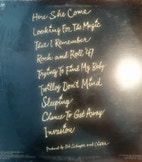 Here She Come
Looking For The Magic
That I Remember
Rock and Roll '47
Trying To Find My Baby
Twilley Don't Mind
Sleeping
Chance To Get Away
Invasion
Produced by Bob Schaper and